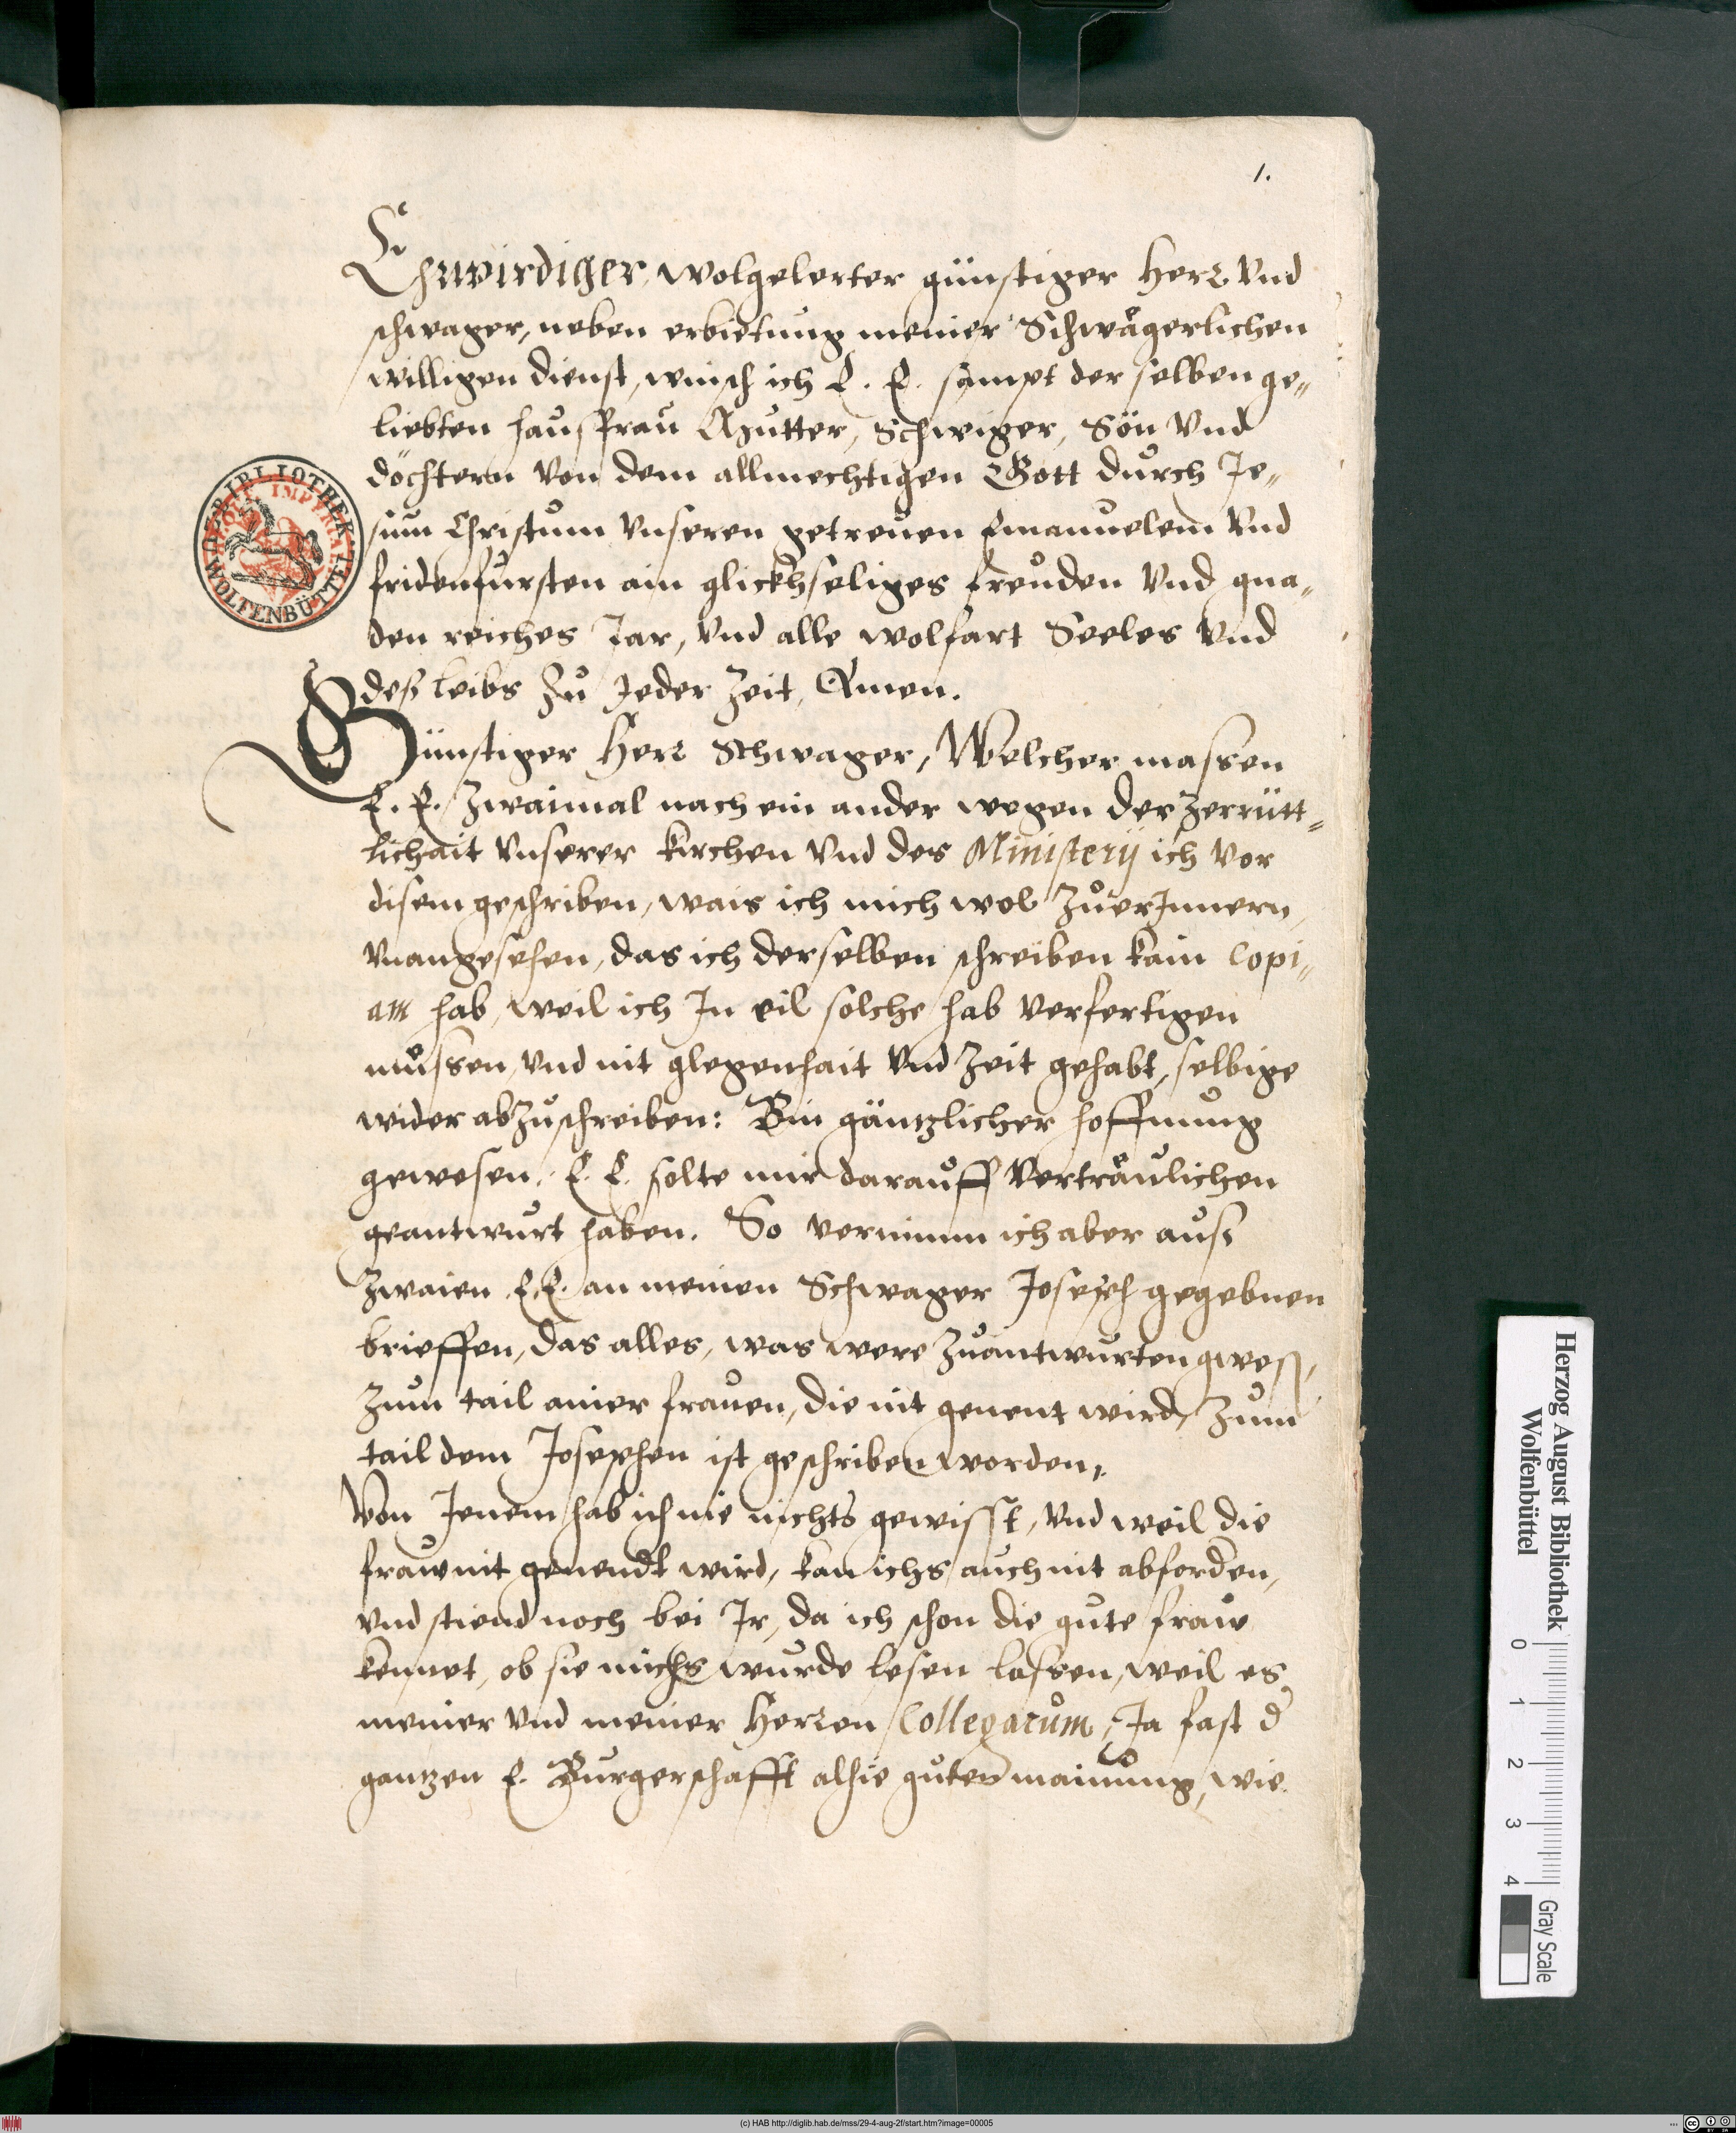 1.
Ehrwirdiger, wolgelerter günstiger Herr Vnd
schwager, neben erbietung meiner Schwägerlichen
willigen dienst, winsch ich E. E. sampt der selben ge„
liebten hausfrau Mutter, Schwiger, Sön Vnd
döchtern Von dem allmechtigen Gott durch Je„
sum Christum Vnseren getreuen Emanuelem Vnd
fridenfursten ain glickhseliges freuden Vnd gna„
den reiches Jar, Vnd alle wolfart Seeles Vnd
deß leibs Zu Jeder Zeit, Amen.
Günstiger Herr Schwager, Welcher massen
E. E. Zwaimal nach ein ander wegen der Zerrütt„
lichait Vnserer kirchen Vnd des Ministerij ich Vor
disem geschriben, wais ich mich wol Zu erJnnern,
Vnangesehen, das ich derselben schreiben kain Copi„
am hab, weil ich Jn eil solche hab Verfertigen
müssen, Vnd nit glegenhait Vnd Zeit gehabt, selbige
wider abZuschreiben: Bin gäntzlicher hoffnung
gewesen, E. E. solte mir darauff Verträulichen
geantwurt haben. So vernimm ich aber auß
Zwaien E. E. an meinen Schwager Joseph gegebnen
brieffen, das alles, was were Zuantwurten gweß,
Zum tail ainer frauen, die nit genent wird, Zum
tail dem Josephen ist geschriben worden,
Von Jenem hab ich nie nichts gewisst, Vnd weil die
frauw nit genendt wird, kan ichs auch nit abforden,
Vnd stiend noch bei Jr, da ich schon die gute frauw
kennet, ob sie michs wurde lesen lassen, weil es
meiner Vnd meiner Herren Collegarum, Ja fast d'
gantzen E. Burgerschafft alhie guten mainung, wie
HERZOGL. BIBLIOTHEK
WOLFENBÜTTEL
Herzog August Bibliothek
Wolfenbüttel
0 1 2 3 4
Gray Scale
(c) HAB http://diglib.hab.de/mss/29-4-aug-2f/start.htm?image=00005